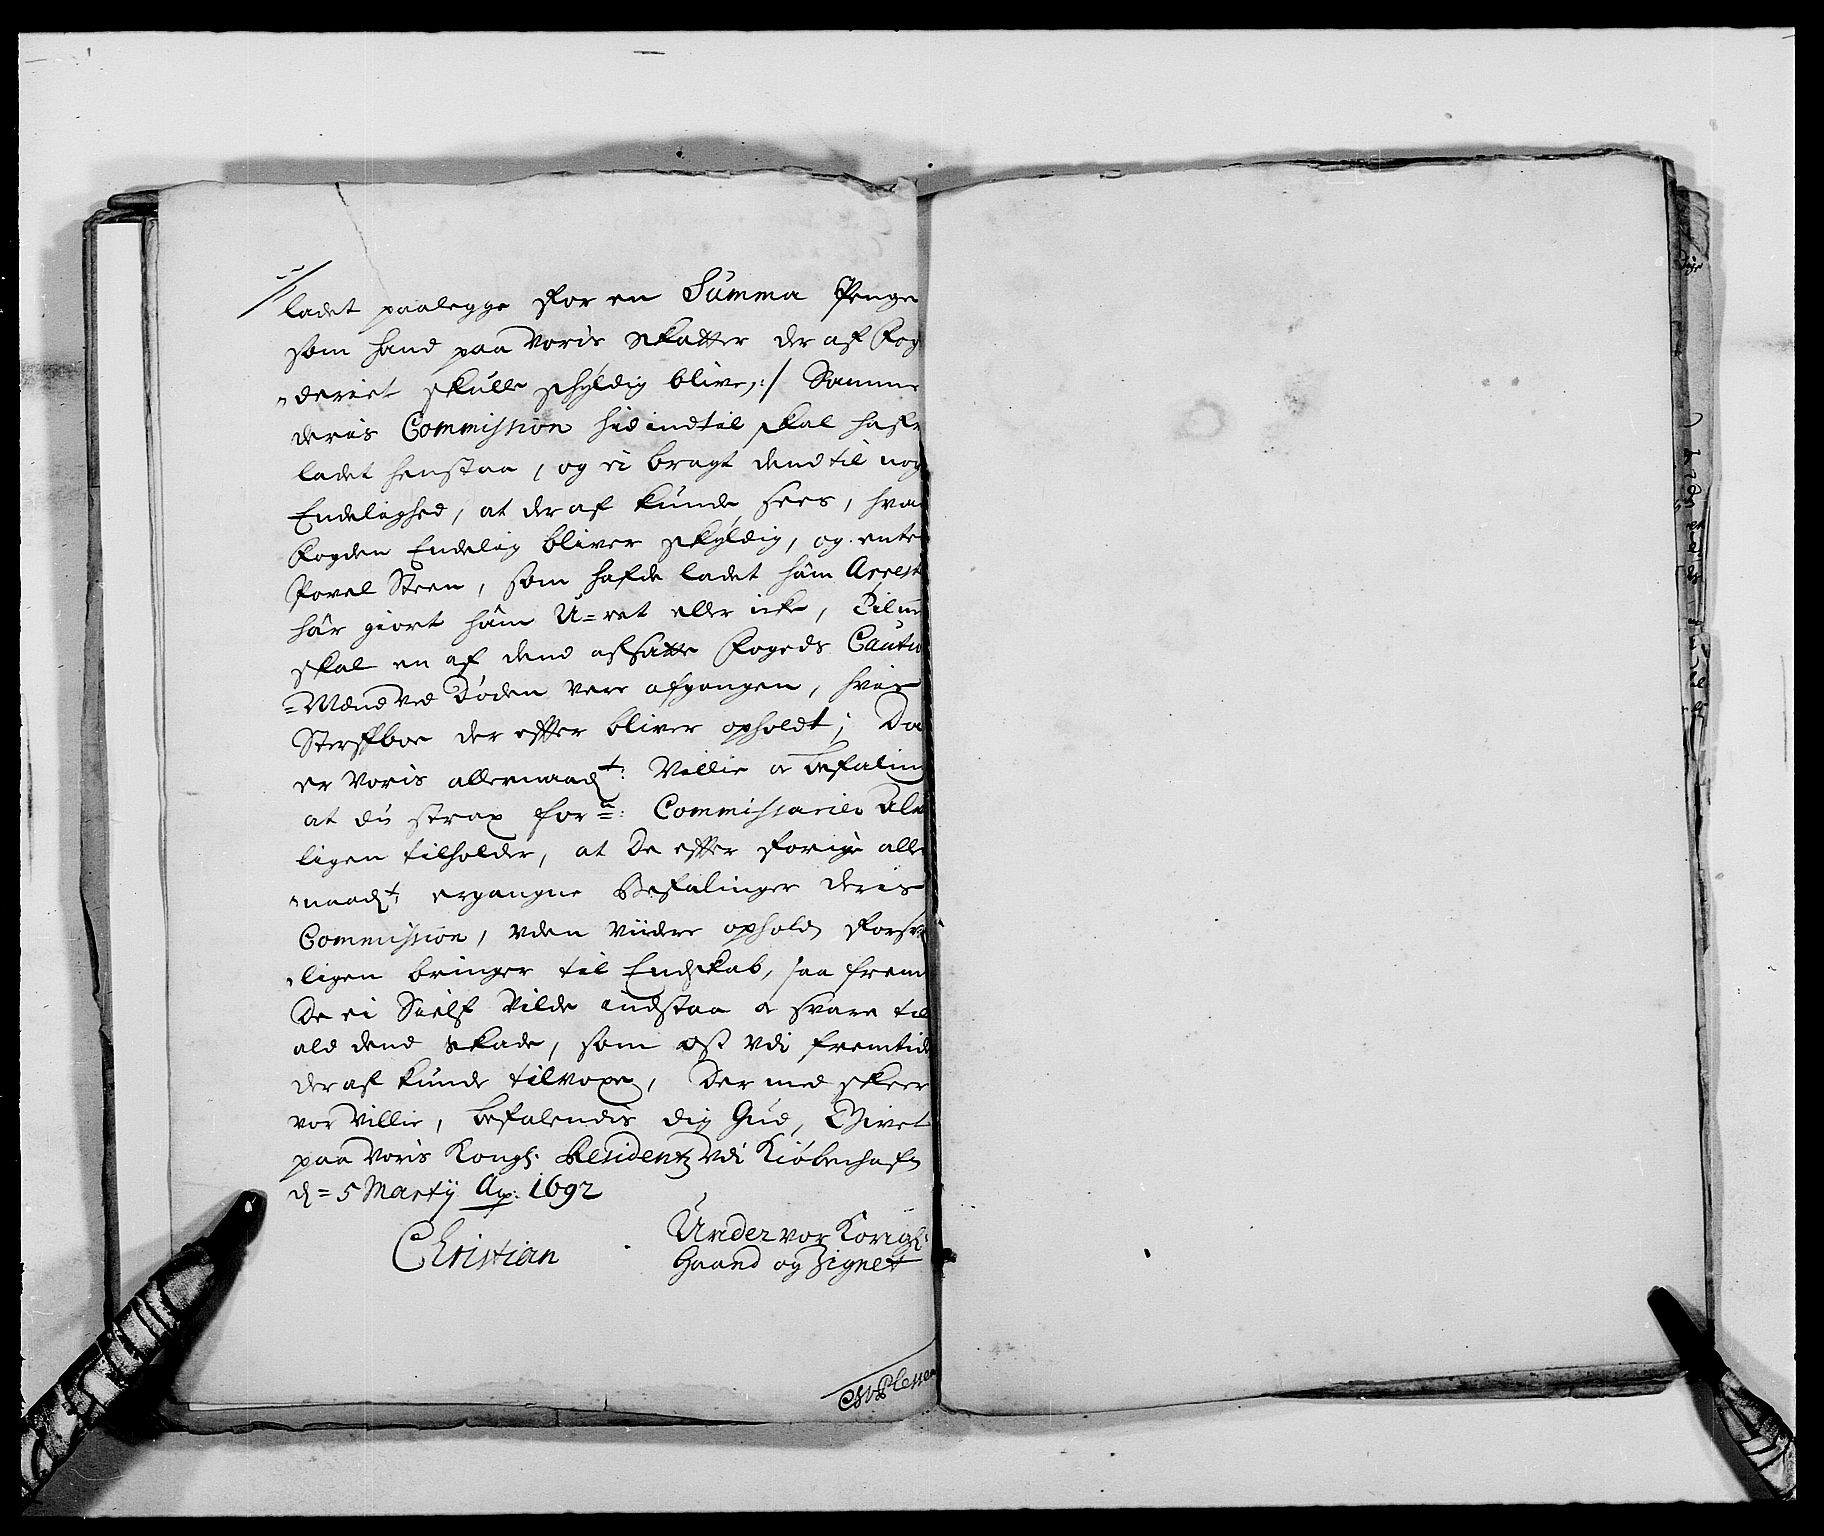 ladet paalegge for en Summa Penge
som hand paa Voris Skatter der af Fog
deriet skulle schyldig blive,:/ Samme
deris Commission hid indtil skal hafe
ladet henstaa, og ei bragt dend til nog
Endelighed, at der af kunde sees, hva
Fogden Endelig bliver skyldig, og ente
Povel Steen, som hafde ladet ham Arrest
har giort ham U=ret eller icke,
skal en af dend afsatte Fogeds Cautio
=Mænd ved Døden vere afgangen, hvis
Sterfboe der effter bliver opholdt; Da
er Voris allernaadt: Villie a Befaling
at du strax forne: Commissarier Alv
ligen tilholder, at De effter forige aller
naadt: ergangne Befalinger deris
Commission, uden viidere ophold forsv
ligen bringer til Endskab, saa frem
De ei Sielf Vilde indstaa a svare til
ald dend skade, som ost udi fremtid
der af kunde tilvoxe, Der med skeer
vor Villie, Befalendis dig Gud, Givet
paa Voris Kongl: Residentz udi Kiøbenhafn
d= 5 Martij Ao: 1692
Christian
Under vor Kongl:
Haand og Zignet
CSvPlessen